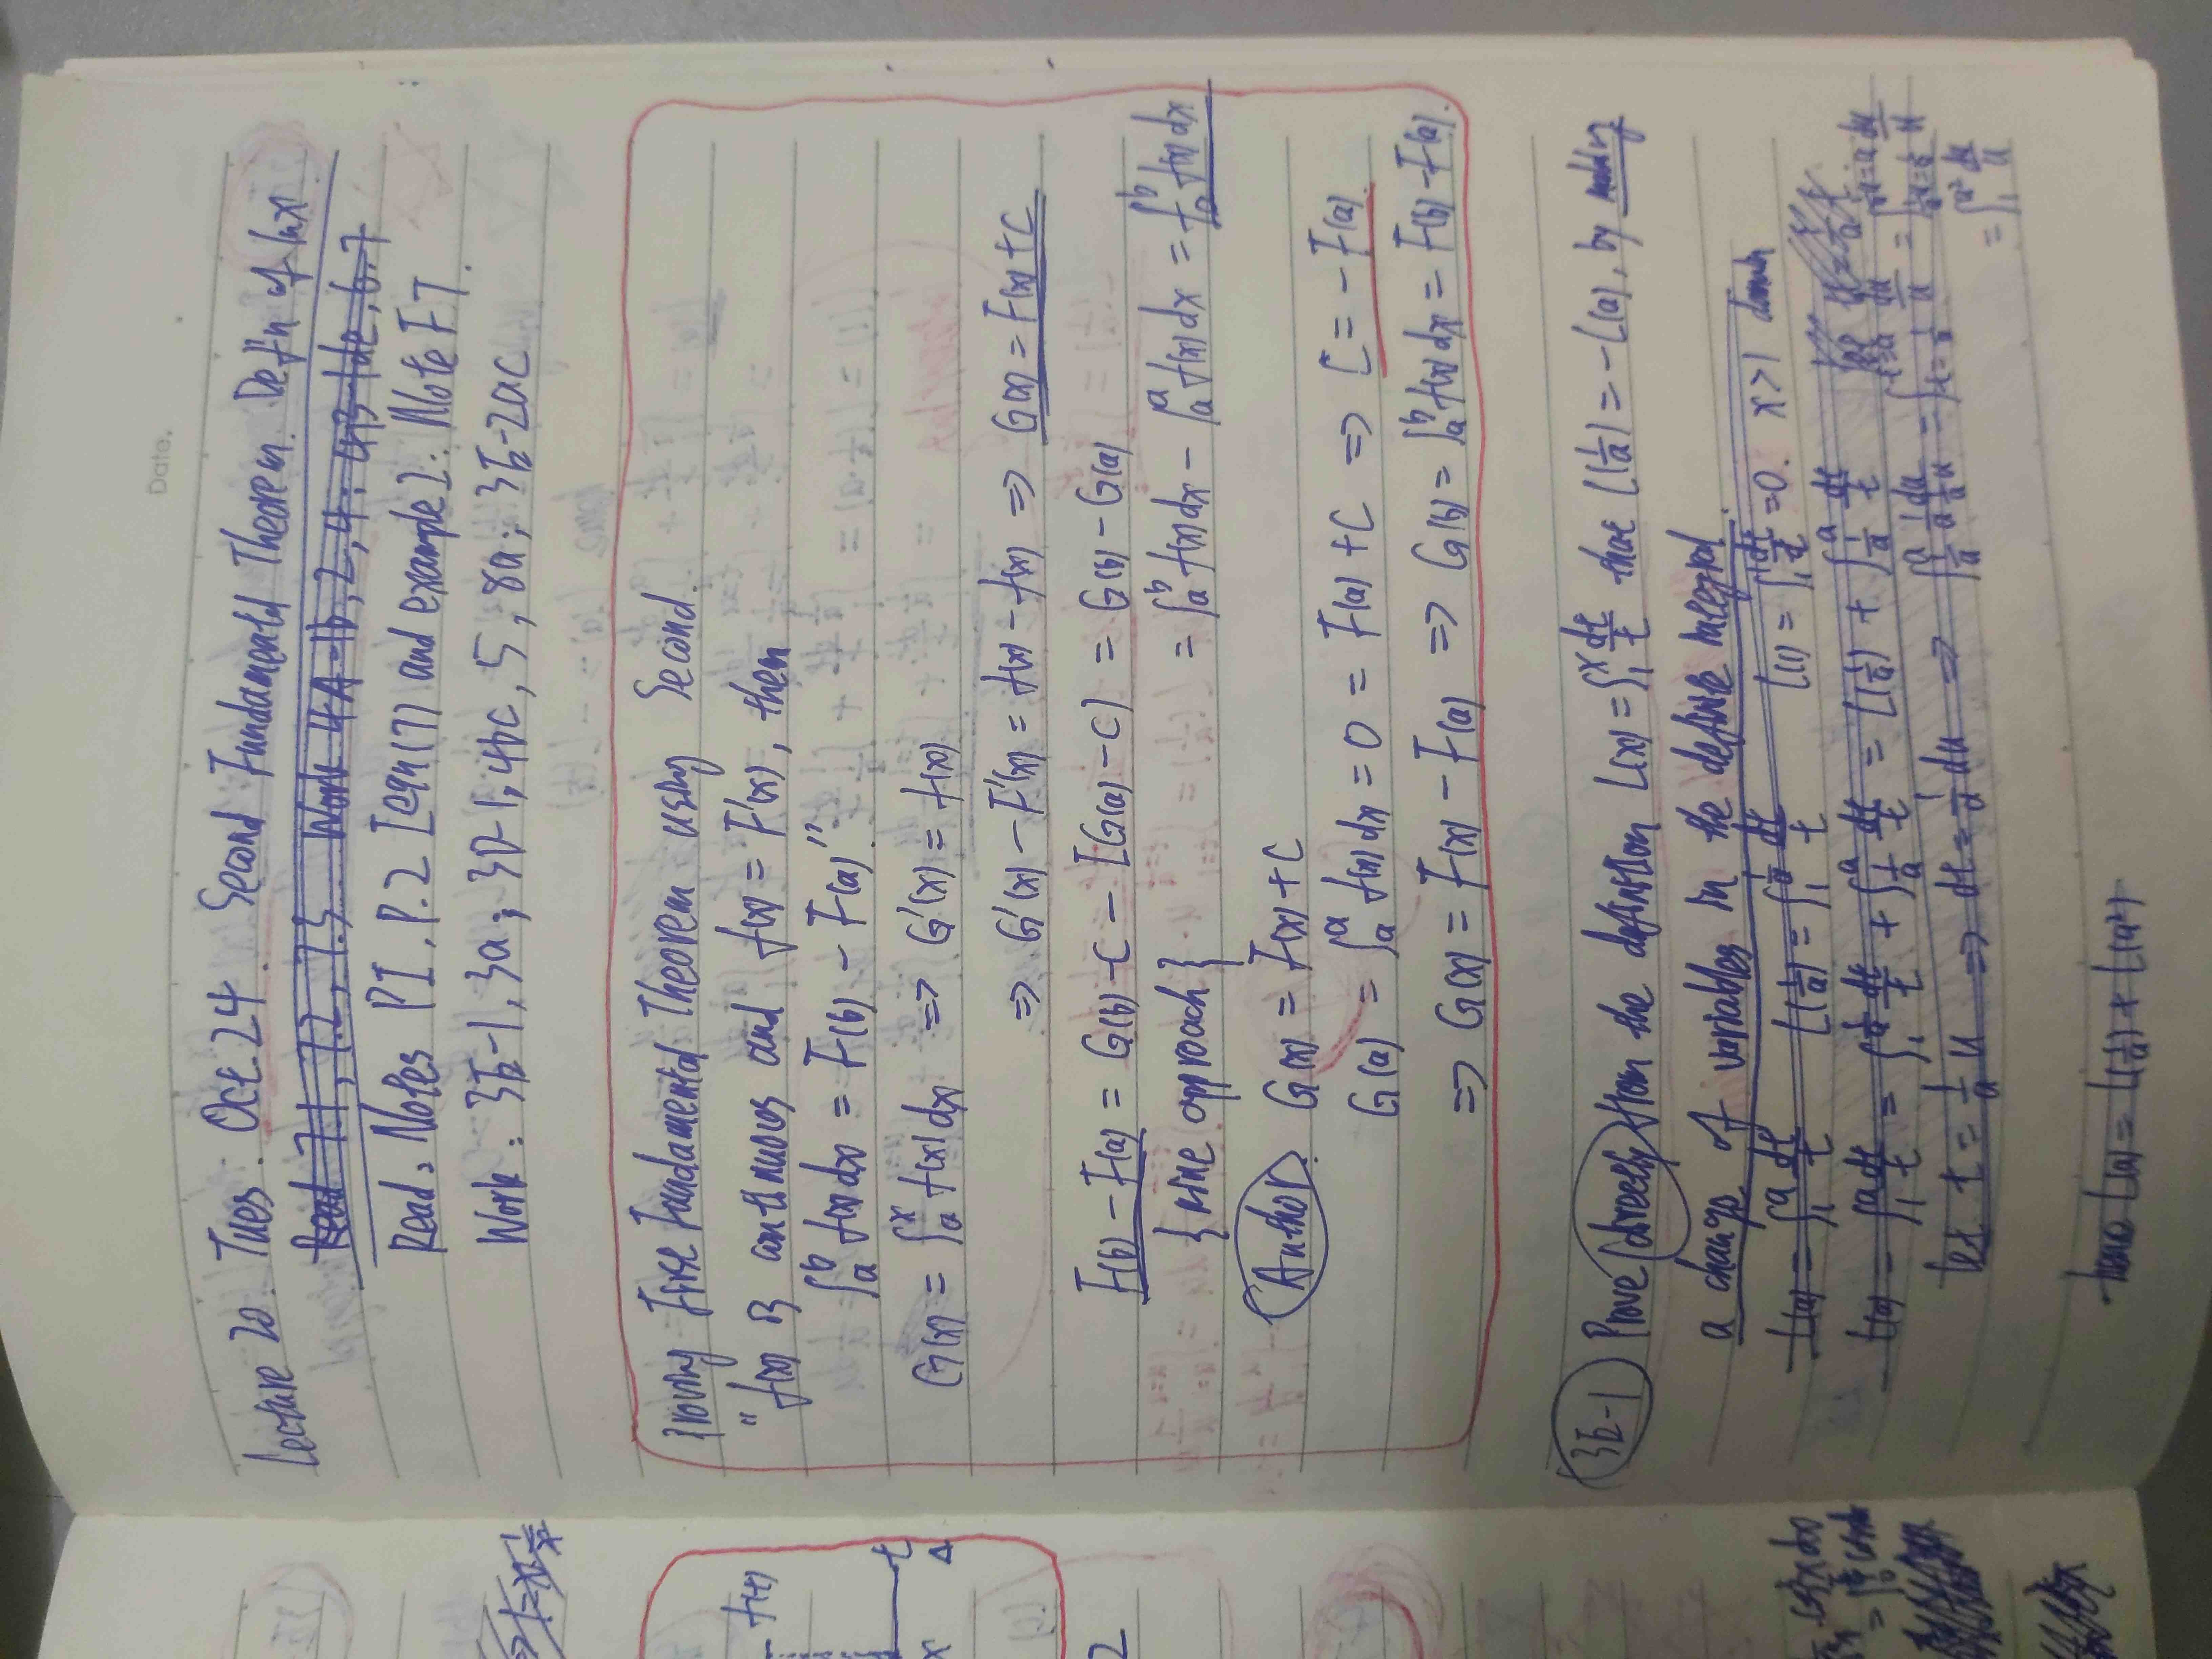 Date.
Lecture 20. Tues. Oct. 24 Second Fundamental Theorem. Def'n of lnx.
Read 7.1, 7.2, 7.3 Work 4A-1b, 2, 4; 4B-1de, 6, 7
Read: Notes PI. P.2 [eqn(7) and example]: Note FT.
Work: 3E-1, 3a; 3D-1, 4bc, 5, 8a; 3E-2ac
Proving First Fundamental Theorem using Second.
"f(x) is continuous and f(x) = F'(x), then
∫_a^b f(x)dx = F(b) - F(a)."
G(x) = ∫_a^x f(x)dx ⇒ G'(x) = f(x)
⇒ G'(x) - F'(x) = f(x) - f(x) ⇒ G(x) = F(x) + C
F(b) - F(a) = G(b) - C - [G(a) - C] = G(b) - G(a)
{mine approach} = ∫_a^b f(x)dx - ∫_a^a f(x)dx = ∫_a^b f(x)dx
Author G(x) = F(x) + C
G(a) = ∫_a^a f(x)dx = 0 = F(a) + C ⇒ C = -F(a)
⇒ G(x) = F(x) - F(a) ⇒ G(b) = ∫_a^b f(x)dx = F(b) - F(a).
3E-1 Prove directly from the definition L(x) = ∫_1^x dt/t that L(1/a) = -L(a), by making
a change of variables in the definite integral.
L(a) = ∫_1^a dt/t L(1/a) = ∫_1^{1/a} dt/t L(1) = ∫_1^1 dt/t = 0. x>1
L(a) = ∫_1^a dt/t = ∫_1^{1/a} dt/t + ∫_{1/a}^a dt/t = L(1/a) + ∫_{1/a}^a dt/t
let t = 1/a u ⇒ dt = 1/a du ⇒
= ∫_1^{a²} du/u
L(a) = L(1/a) + L(a²)